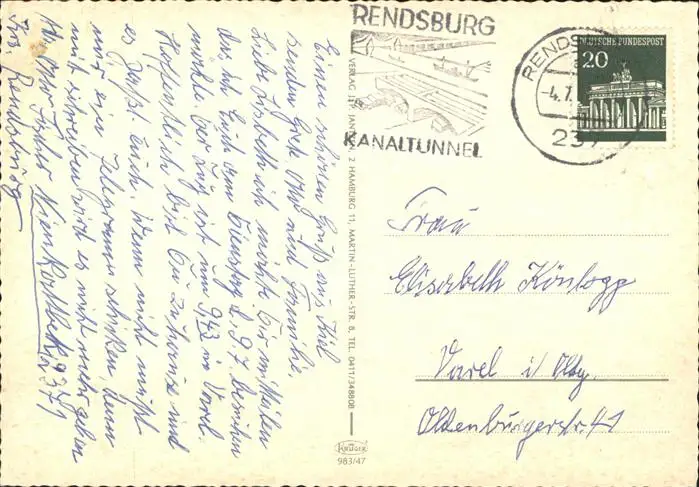 Einen schönen Gruß aus Kiel
senden Euch Otto und Familie.
Liebe Lisbeth ich möchte Dir mitteilen
das ich Euch am Dienstag d. 9.7. besuchen
möchte. Der Zug ist um 9.43 in Varel.
Hoffentlich bist Du zu Hause und
es paßt Euch. Wenn nicht mußt
mir ein Telegramm schicken, denn
mit schreiben wird es nicht mehr gehen
Otto Fischer
Rendsburg
VERLAG JANSEN 2 HAMBURG 11, MARTIN-LUTHER-STR. 8, TEL. 0411/348808
KRÜGER
983/47
RENDSBURG
KANALTUNNEL
RENDS
-4.7.
237
DEUTSCHE BUNDESPOST
20
Frau
Elisabeth Könlogg
Varel i/ Oldbg.
Oldenburgerstr. 41